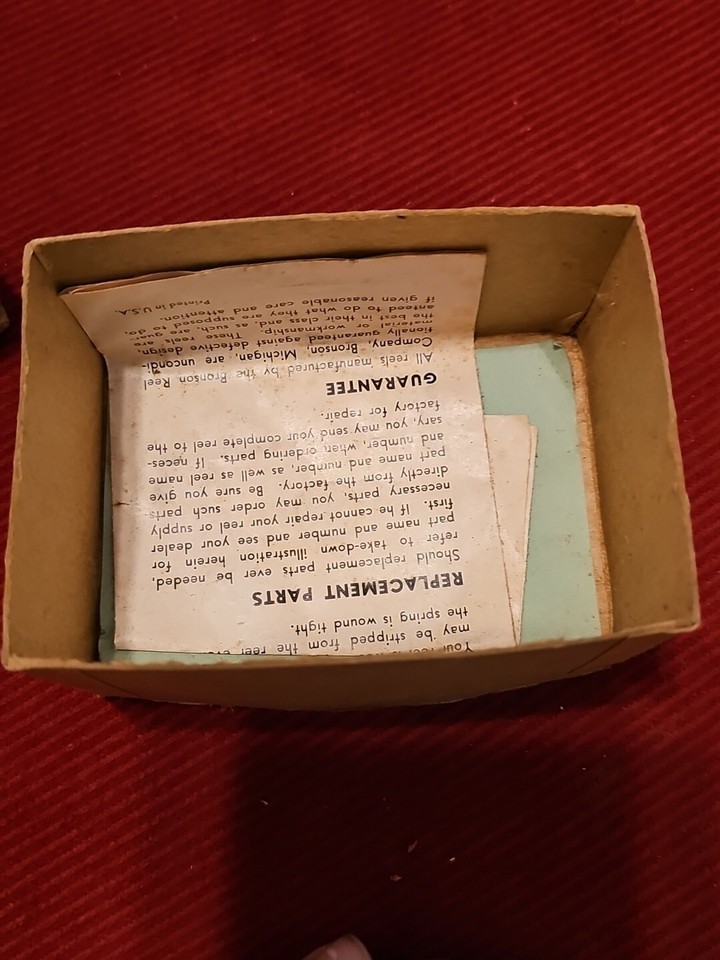 may be stripped from the reel
the spring is wound tight.
REPLACEMENT PARTS
Should replacement parts ever be needed,
refer to take-down illustration herein for
part name and number and see your dealer
first. If he cannot repair your reel or supply
necessary parts, you may order such parts
directly from the factory. Be sure you give
part name and number, as well as reel name
and number, when ordering parts. If neces-
sary, you may send your complete reel to the
factory for repair.
GUARANTEE
All reels manufactured by the Bronson Reel
Company, Bronson, Michigan, are uncondi-
tionally guaranteed against defective design,
material or workmanship. These reels are
the best in their class and, as such, are guar-
anteed to do what they are supposed to do,
if given reasonable care and attention.
Printed in U.S.A.